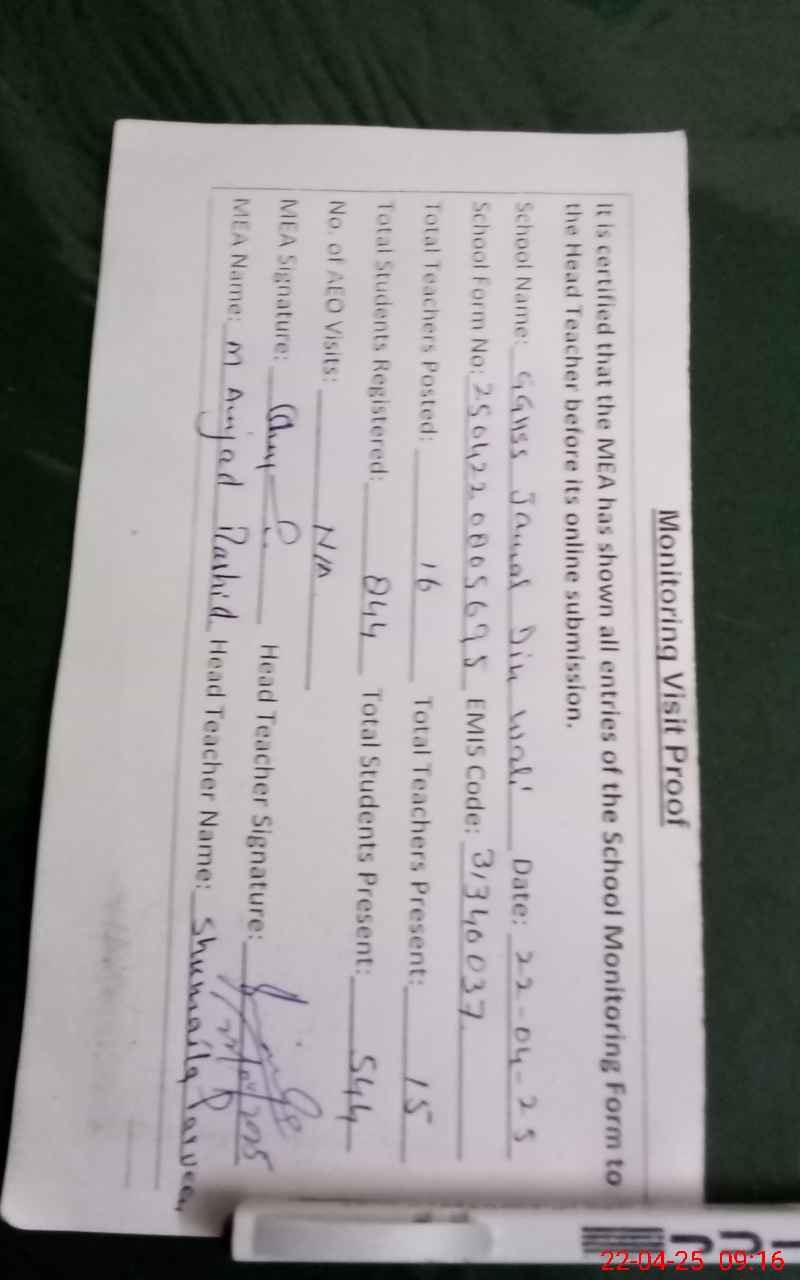 Monitoring Visit Proof
It is certified that the MEA has shown all entries of the School Monitoring Form to
the Head Teacher before its online submission.
School Name: GGHSS Jamal Din Wali Date: 22-04-25
School Form No: 2504220805695 EMIS Code: 31340037
Total Teachers Posted: 16 Total Teachers Present: 15
Total Students Registered: 844 Total Students Present: 544
No. of AEO Visits: N/A
MEA Signature: Head Teacher Signature:
MEA Name: M Amjad Rashid Head Teacher Name: Shumaila Parveen
22-04-25 09:16